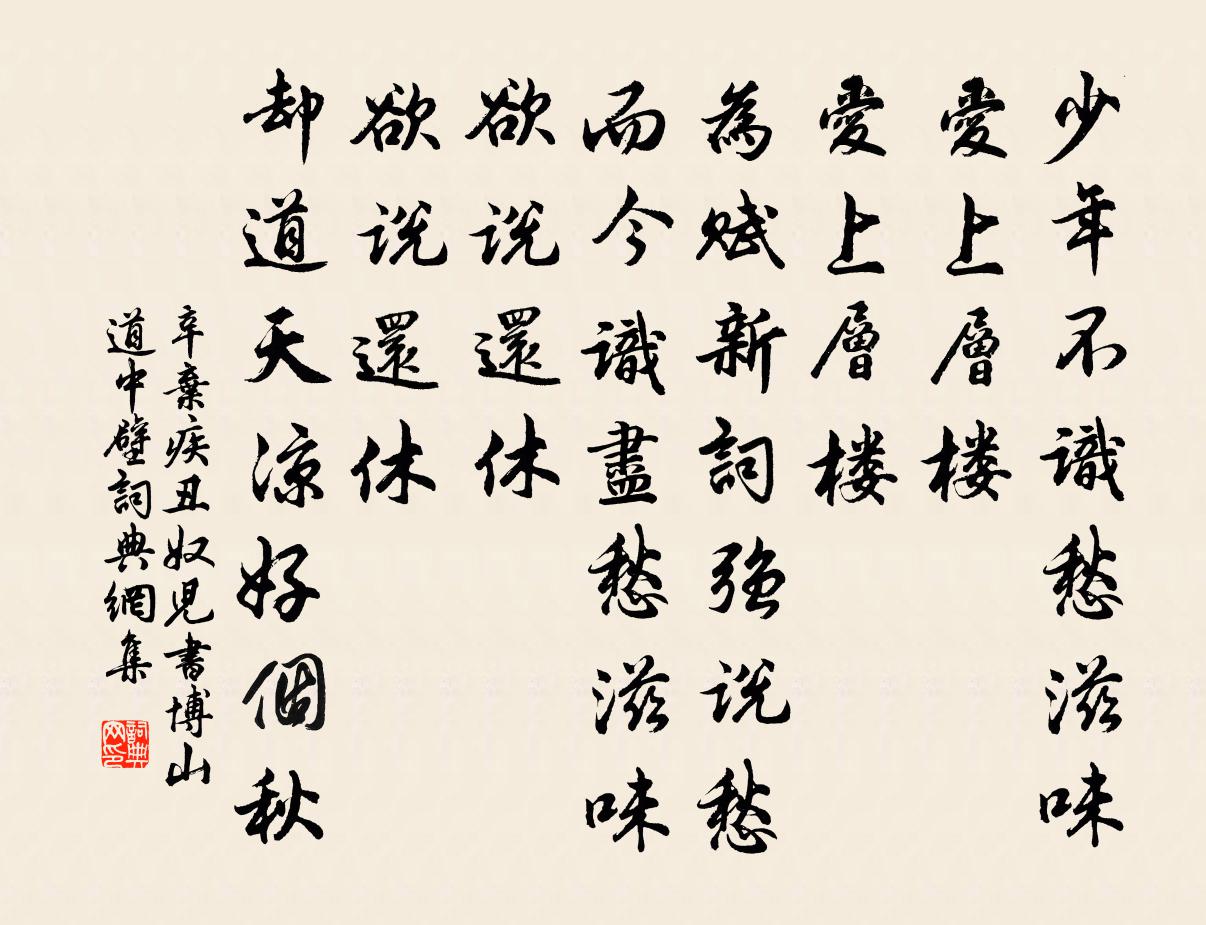 少年不識愁滋味
愛上層楼
愛上層楼
為賦新詞強説愁
而今識盡愁滋味
欲説還休
欲説還休
却道天凉好個秋
辛棄疾丑奴児書博山
道中壁詞典網集
詞典
网印